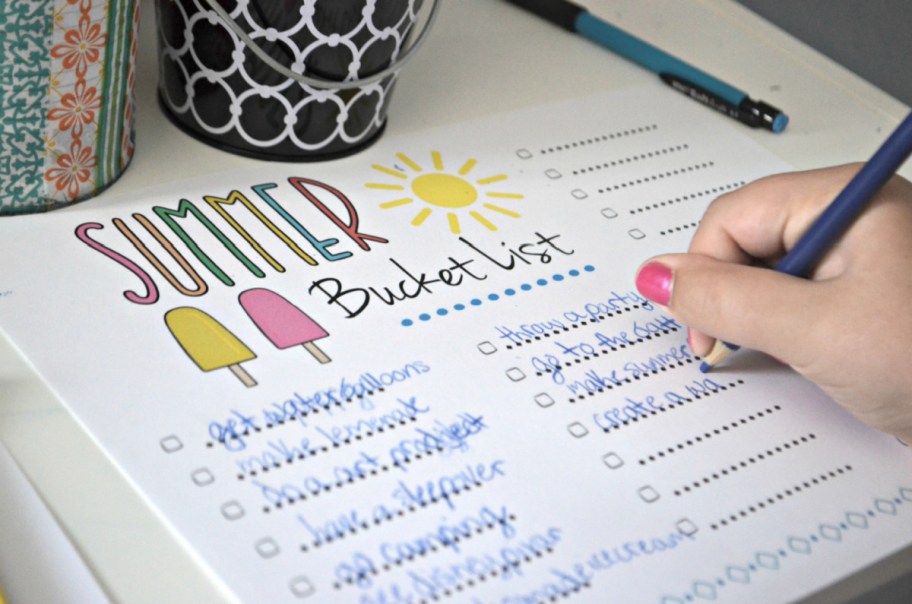 SUMMER
Bucket List
get waterballoons
make lemonade
do a art prodject
have a sleepover
go camping
see disney plan
made icecream
throw a party
go to the
make summer
create a wa